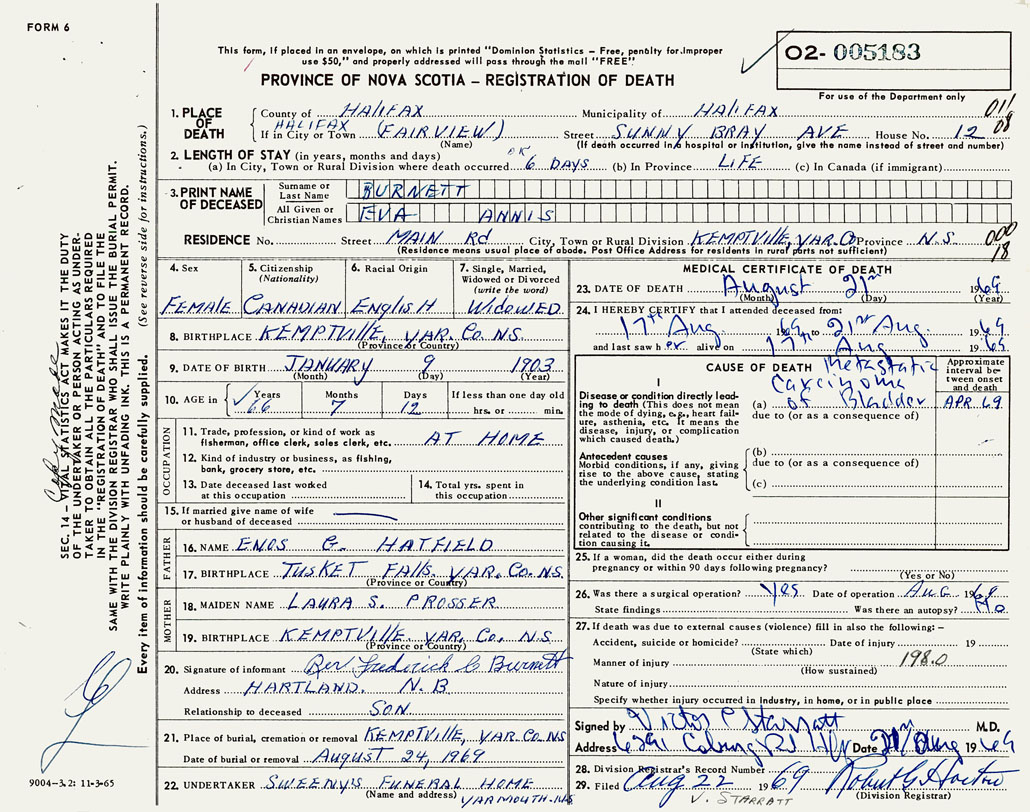 FORM 6
This form, if placed in an envelope, on which is printed "Dominion Statistics – Free, penalty for improper
use $50," and properly addressed will pass through the mail "FREE".
PROVINCE OF NOVA SCOTIA – REGISTRATION OF DEATH
O2- 005183
For use of the Department only
1. PLACE OF DEATH { County of HALIFAX Municipality of HALIFAX 011
HALIFAX 08
If in City or Town (FAIRVIEW) Street SUNNY BRAY AVE House No. 12
(Name) (If death occurred in a hospital or institution, give the name instead of street and number)
2. LENGTH OF STAY (in years, months and days)
(a) In City, Town or Rural Division where death occurred 6 DAYS (b) In Province LIFE (c) In Canada (if immigrant)
3. PRINT NAME OF DECEASED
Surname or Last Name BURNETT
All Given or Christian Names EVA ANNIS
RESIDENCE No. Street MAIN Rd City, Town or Rural Division KEMPTVILLE, YAR. Co Province N.S. 000
(Residence means usual place of abode. Post Office Address for residents in rural parts not sufficient) 18
4. Sex FEMALE
5. Citizenship (Nationality) CANADIAN
6. Racial Origin ENGLISH
7. Single, Married, Widowed or Divorced (write the nature) WIDOWED
8. BIRTHPLACE KEMPTVILLE, YAR. Co. N.S.
(Province or Country)
9. DATE OF BIRTH JANUARY 9 1903
(Month) (Day) (Year)
10. AGE in { Years Months Days If less than one day old
66 7 12 hrs. or min.
OCCUPATION
11. Trade, profession, or kind of work as
fisherman, office clerk, sales clerk, etc. AT HOME
12. Kind of industry or business, as fishing,
bank, grocery store, etc.
13. Date deceased last worked
at this occupation
14. Total yrs. spent in
this occupation
15. If married give name of wife
or husband of deceased
FATHER
16. NAME ENOS G. HATFIELD
17. BIRTHPLACE TUSKET FALLS. YAR. Co. N.S.
(Province or Country)
MOTHER
18. MAIDEN NAME LAURA S. PROSSER
19. BIRTHPLACE KEMPTVILLE. YAR. Co. N.S.
(Province or Country)
20. Signature of informant Rev Frederick C Burnett
Address HARTLAND. N.B
Relationship to deceased SON.
21. Place of burial, cremation or removal KEMPTVILLE, YAR. Co NS
Date of burial or removal AUGUST 24, 1969
22. UNDERTAKER SWEENY'S FUNERAL HOME
(Name and address) YARMOUTH. N.S
MEDICAL CERTIFICATE OF DEATH
23. DATE OF DEATH August 21st 1969
(Month) (Day) (Year)
24. I HEREBY CERTIFY that I attended deceased from:
17th Aug 1969 to 21st Aug. 1969
and last saw her alive on 17th Aug 1969
CAUSE OF DEATH
Approximate interval between onset and death
I
Disease or condition directly leading to death (This does not mean the mode of dying, e.g., heart failure, asthenia, etc. It means the disease, injury, or complication which caused death.)
(a) Metastatic Carcinoma of Bladder APR 69
due to (or as a consequence of)
Antecedent causes
Morbid conditions, if any, giving rise to the above cause, stating the underlying condition last.
(b)
due to (or as a consequence of)
(c)
II
Other significant conditions
contributing to the death, but not related to the disease or condition causing it.
25. If a woman, did the death occur either during
pregnancy or within 90 days following pregnancy?
(Yes or No)
26. Was there a surgical operation? Yes Date of operation AUG 1969
State findings Was there an autopsy? No
27. If death was due to external causes (violence) fill in also the following: –
Accident, suicide or homicide? Date of injury 19
(State which)
Manner of injury 198.0
(How sustained)
Nature of injury
Specify whether injury occurred in industry, in home, or in public place
Signed by Victor C Starratt M.D.
Address 6291 Coburg Rd Hfx Date 21st Aug 1969
28. Division Registrar's Record Number
29. Filed Aug 22 1969 Robert G. Horton
V. STARRATT (Division Registrar)
SEC. 14 – VITAL STATISTICS ACT MAKES IT THE DUTY
OF THE UNDERTAKER OR PERSON ACTING AS UNDER-
TAKER TO OBTAIN ALL THE PARTICULARS REQUIRED
IN THE "REGISTRATION OF DEATH" AND TO FILE THE
SAME WITH THE DIVISION REGISTRAR WHO SHALL ISSUE THE BURIAL PERMIT.
WRITE PLAINLY WITH UNFADING INK. THIS IS A PERMANENT RECORD.
Every item of information should be carefully supplied. (See reverse side for instructions.)
9004-3.2: 11-3-65